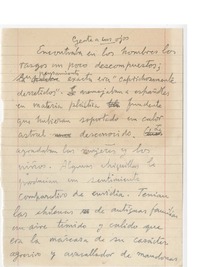 Cegata a sus ojos
Encontraba en los hombres los
rasgos un poco descompuestos;
exacta era "caprichosamente
derretidos". Se
en materia plástica fundente
que hubieran soportado un calor
astral desconocido.
agradaban las mujeres y los
niños. Algunos chiquillos le
producían un sentimiento
comparativo de envidia. Tenían
las chilenas de antiguas familias
un aire tímido y cálido que
era la máscara de su carácter
agrario y avasallador de mandonas